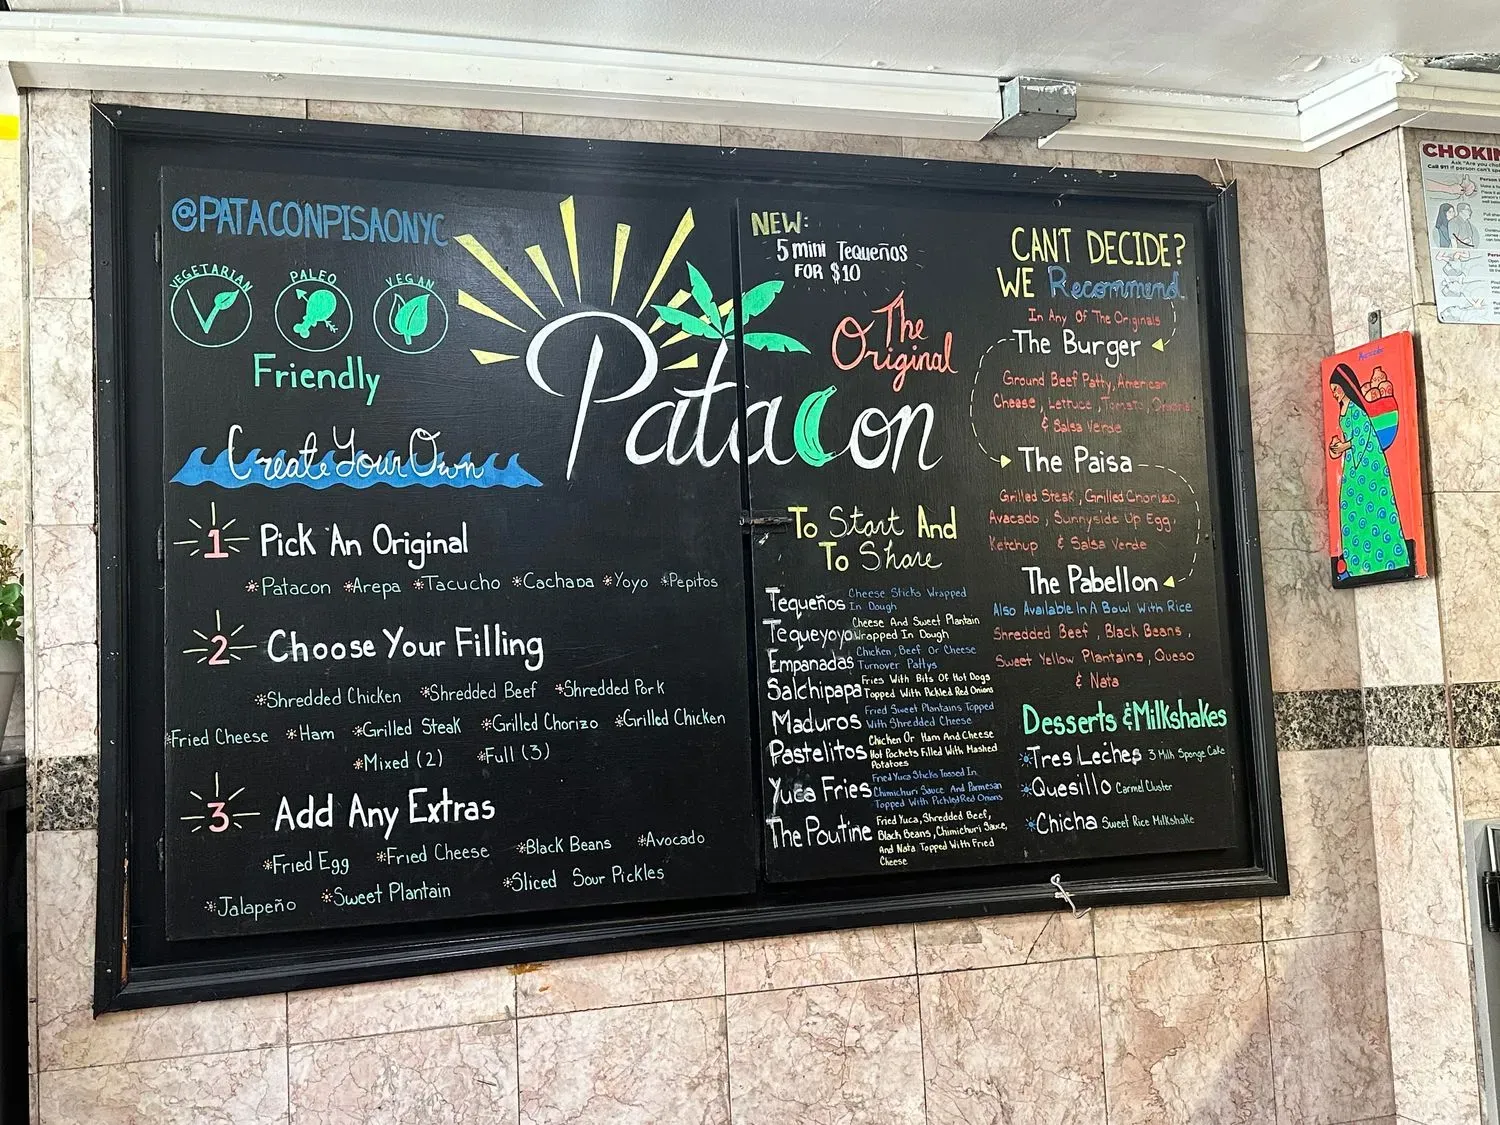 @PATACONPISAONYC
VEGETARIAN
PALEO
VEGAN
Friendly
Create Your Own
1 Pick An Original
*Patacon *Arepa *Tacucho *Cachapa *Yoyo *Pepitos
2 Choose Your Filling
*Shredded Chicken *Shredded Beef *Shredded Pork
*Fried Cheese *Ham *Grilled Steak *Grilled Chorizo *Grilled Chicken
*Mixed (2) *Full (3)
3 Add Any Extras
*Fried Egg *Fried Cheese *Black Beans *Avocado
*Jalapeño *Sweet Plantain *Sliced Sour Pickles
NEW:
5 mini Tequeños
FOR $10
The
Original
Patacon
To Start And
To Share
Tequeños Cheese Sticks Wrapped
In Dough
Tequeyoyo Cheese And Sweet Plantain
Wrapped In Dough
Empanadas Chicken, Beef Or Cheese
Turnover Pattys
Salchipapa Fries With Bits Of Hot Dogs
Topped With Pickled Red Onions
Maduros Fried Sweet Plantains Topped
With Shredded Cheese
Pastelitos Chicken Or Ham And Cheese
Hot Pockets Filled With Mashed
Potatoes
Yuca Fries Fried Yuca Sticks Tossed In
Chimichuri Sauce And Parmesan
Topped With Pickled Red Onions
The Poutine Fried Yuca, Shredded Beef,
Black Beans, Chimichuri Sauce,
And Nata Topped With Fried
Cheese
CAN'T DECIDE?
WE Recommend
In Any Of The Originals
The Burger
Ground Beef Patty, American
Cheese, Lettuce, Tomato, Onions
& Salsa Verde
The Paisa
Grilled Steak, Grilled Chorizo,
Avacado, Sunnyside Up Egg,
Ketchup & Salsa Verde
The Pabellon
Also Available In A Bowl With Rice
Shredded Beef, Black Beans,
Sweet Yellow Plantains, Queso
& Nata
Desserts & Milkshakes
*Tres Leches 3 Milk Sponge Cake
*Quesillo Carmel Cluster
*Chicha Sweet Rice Milkshake
CHOKIN